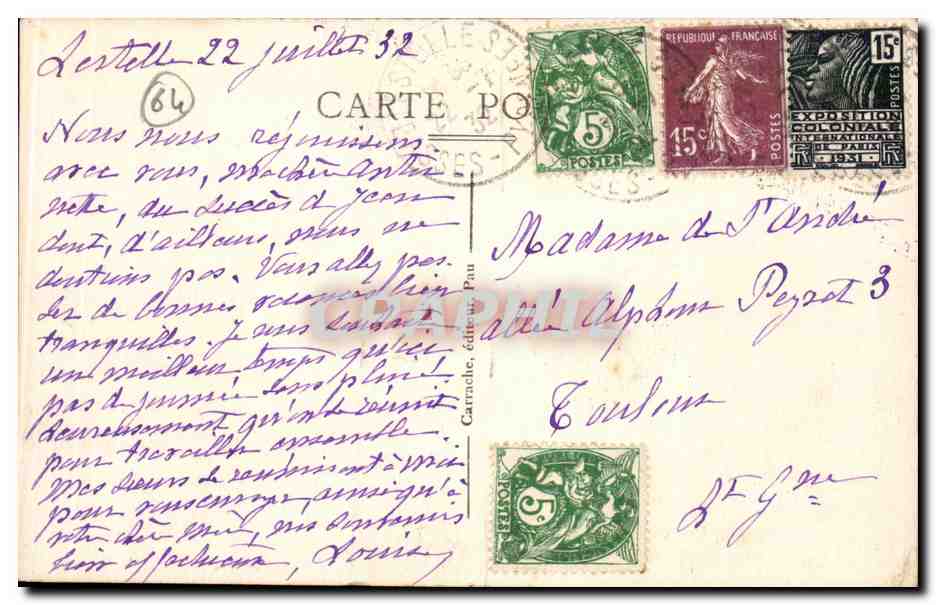 Lestelle 22 juillet 32
64
CARTE PO
Nous nous réjouissons
avec vous, ma chère Antoi
nette, du succès d Jean
dont, d'ailleurs, nous ne
doutions pas. Vous allez pas
ser de bonnes vacances bien
tranquilles. Je vous souhait
un meilleur temps qu'ici
pas de journée sans pluie
heureusement qu'on se réunit
pour travailler ensemble.
Mes sœurs se réunissent à moi
pour vous envoyer, ainsi qu'à
votre chère Mère, nos souvenirs
bien affectueux, Louise
Carrache, éditeur, Pau
CRAPHIL
5c
POSTES
REPUBLIQUE FRANÇAISE
15c
POSTES
15c
POSTES
EXPOSITION
COLONIALE
INTERNATIONALE
PARIS
1931
Madame de St André
allée Alphonse Peyrat 3
Toulouse
Hte Gne
5c
POSTES